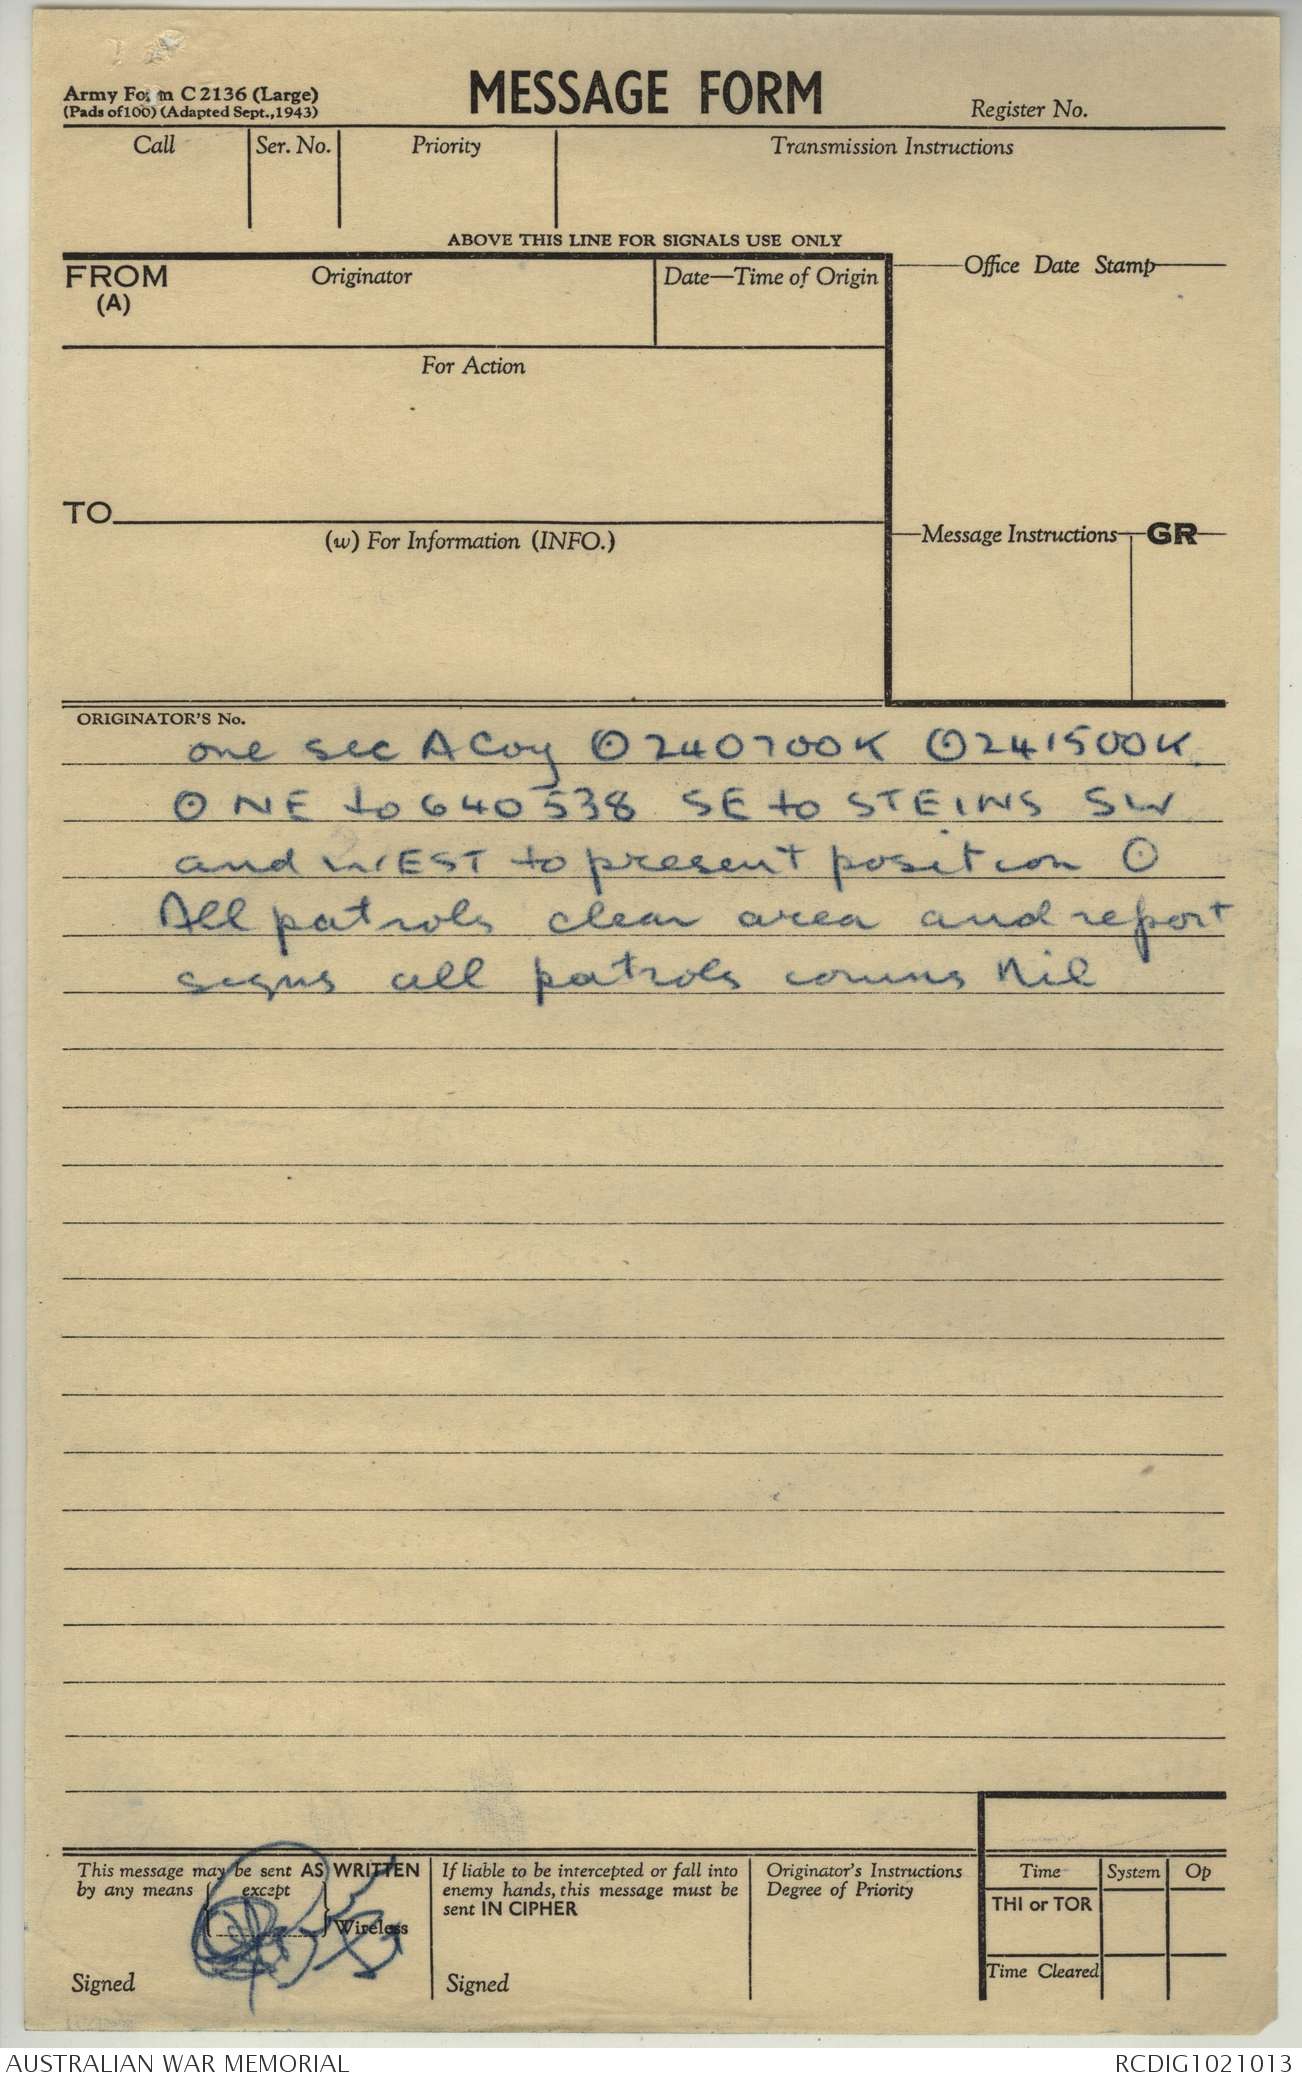 Army Form C 2136 (Large)
(Pads of 100) (Adapted Sept., 1943)
MESSAGE FORM
Register No.
Call
Ser. No.
Priority
Transmission Instructions
ABOVE THIS LINE FOR SIGNALS USE ONLY
FROM
(A)
Originator
Date—Time of Origin
Office Date Stamp
For Action
TO
(w) For Information (INFO.)
Message Instructions
GR
ORIGINATOR'S No.
one sec A Coy ⊙ 240700K ⊙ 241500K
⊙ NE to 640538 SE to STEINS SW
and WEST to present position ⊙
All patrols clear area and report
signs all patrols comns Nil
This message may be sent AS WRITTEN
by any means
except
Wireless
Signed
If liable to be intercepted or fall into
enemy hands, this message must be
sent IN CIPHER
Signed
Originator's Instructions
Degree of Priority
Time
System
Op
THI or TOR
Time Cleared
AUSTRALIAN WAR MEMORIAL
RCDIG1021013